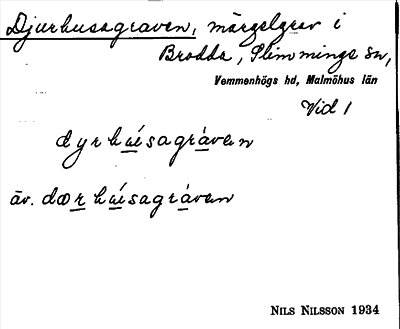 Djurhusagraven, märgelgrav i
Brodda, Slimminge sn,
Vemmenhögs hd, Malmöhus län
Vid 1
dyrhúsagráven
äv. dœrhúsagráven
NILS NILSSON 1934